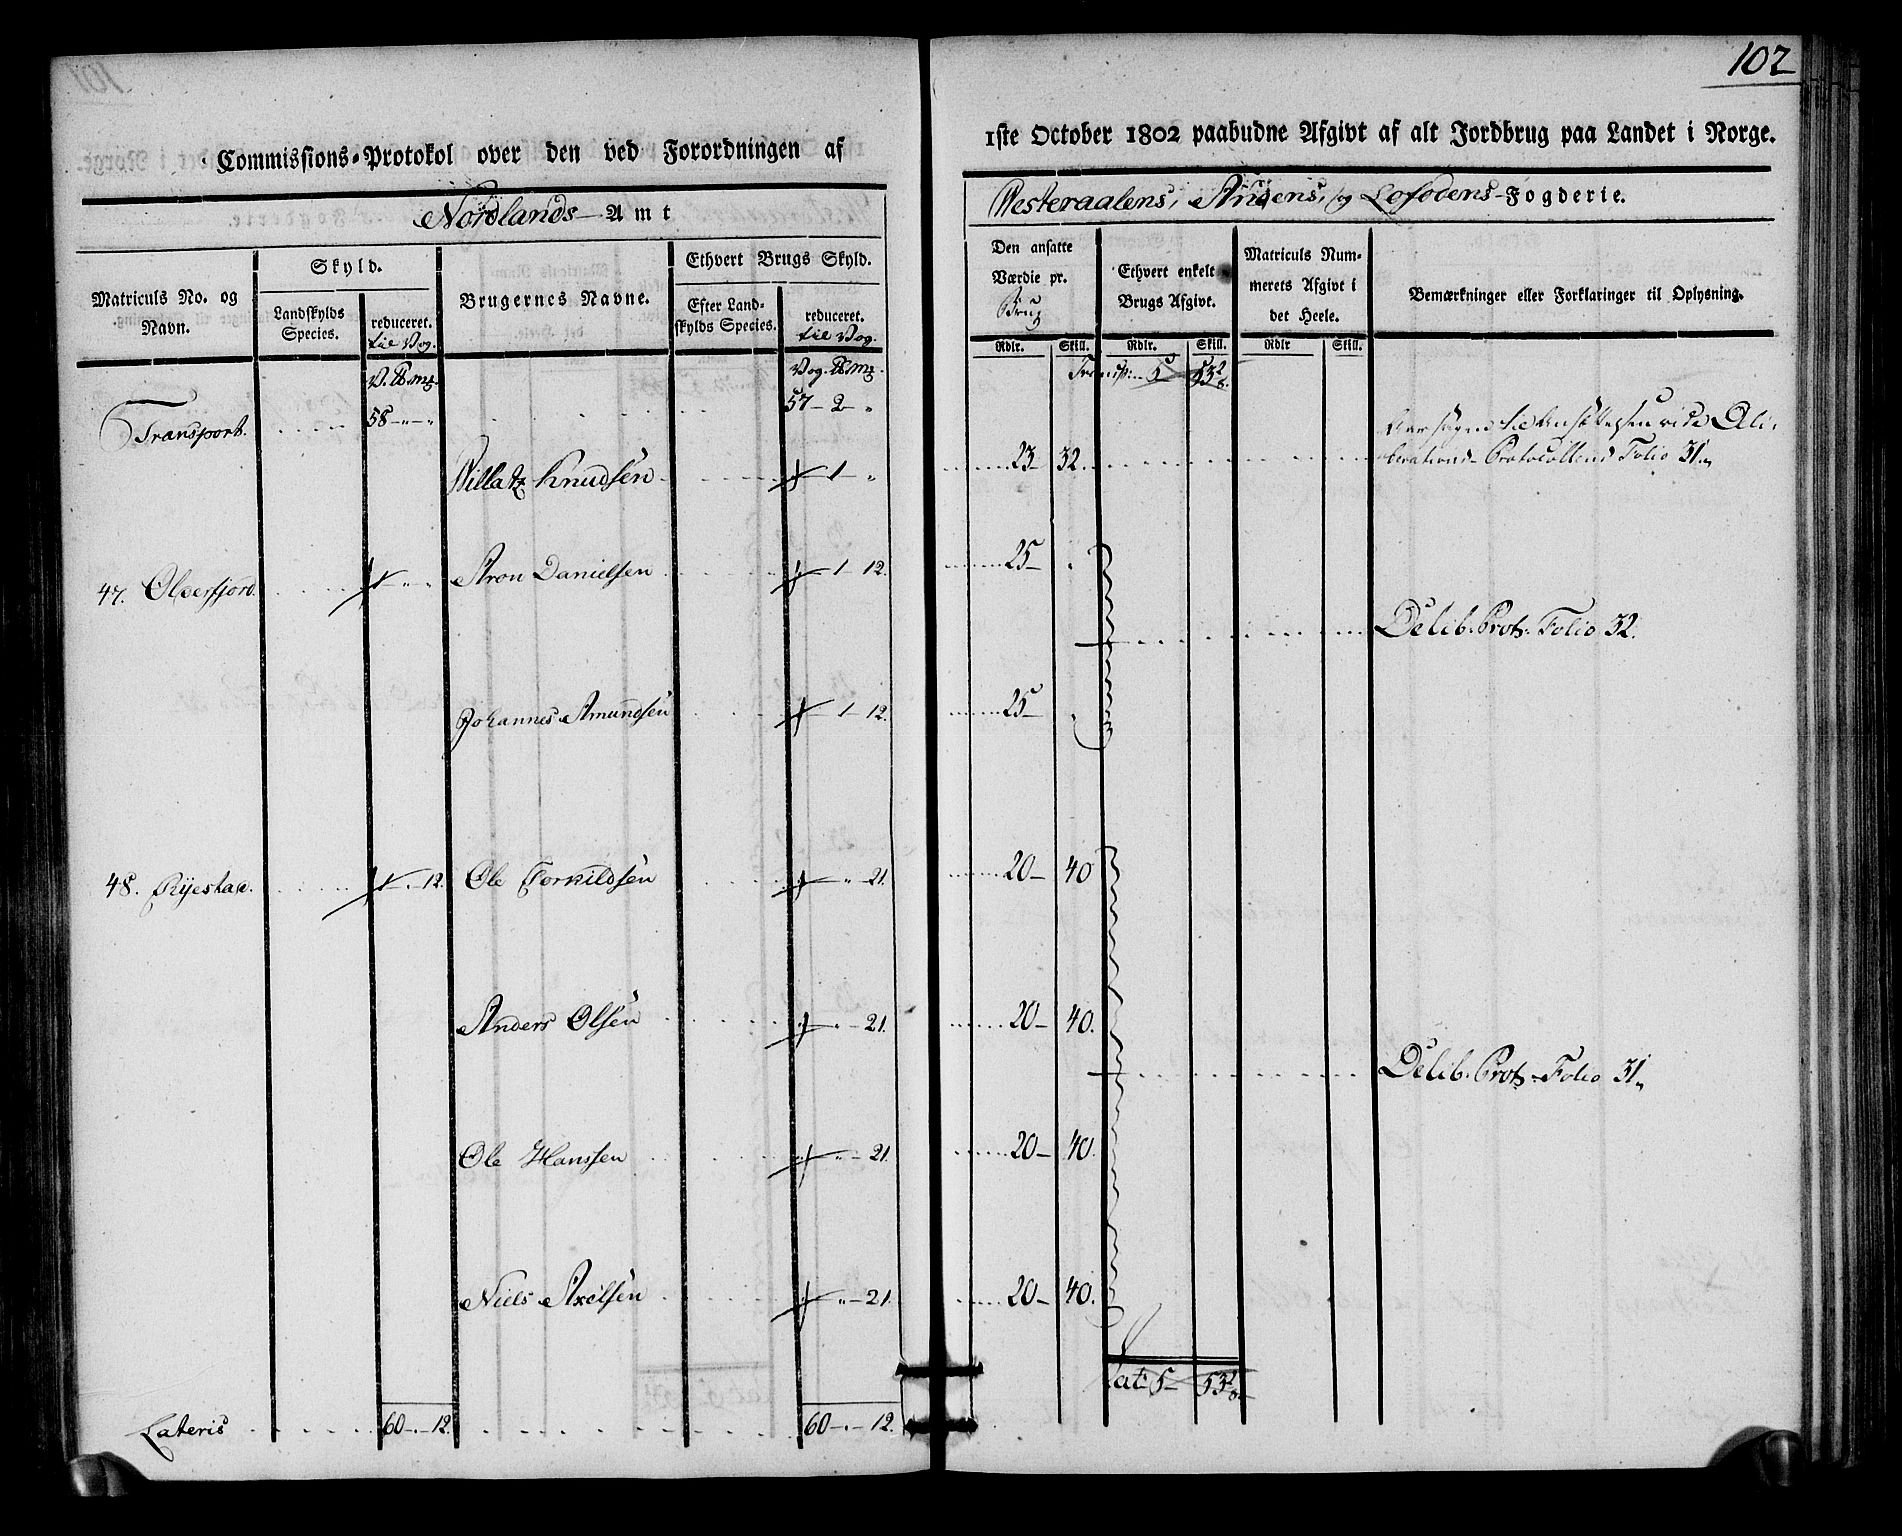 102
Commissions-Protokol over den ved Forordningen af
1ste October 1802 paabudne Afgivt af alt Jordbrug paa Landet i Norge.
Nordlands Amt
Westeraalens, Andenes, og Lofodens-Fogderie.
Matriculs No. og Navn.
Skyld.
Landskylds Species.
reduceret. til Vog.
Brugernes Navne.
Ethvert Brugs Skyld.
Efter Landskylds Species.
reduceret. til Vog.
Den ansatte Værdie pr. Brug
Rdlr. Skill.
Ethvert enkelt Brugs Afgivt.
Rdlr. Skill.
Matriculs Nummerets Afgivt i det Heele.
Rdlr Skill.
Bemærkninger eller Forklaringer til Oplysning.
V. ℔ mg. Vog. ℔ mg. Transp: 5 53 2/8.
Transport. 58 - " - " 57 - 2 - "
Willatz Knudsen - 1 - " 23 - 32. Aarsagen til Ansættelsen vide Deli-
berations-Protocollens Folio 31.
47. Olderfjord. 1 " " Aron Danielsen - 1 - 12. 25 - .
Delib: Prot: Folio 32.
Johannes Amundsen - 1 - 12. 25 - .
48. Ryestad. 1 - . 12. Ole Torkildsen " - 21. 20 - 40
Anders Olsen " - 21. 20 - 40.
Delib: Prot: Folio 31.
Ole Hanssen " - 21. 20 - 40.
Niels Axelsen " - 21. 20 - 40.
Lat: 5 - 53 2/8
Lateris 60 - . - 12. 60 - . - 12.